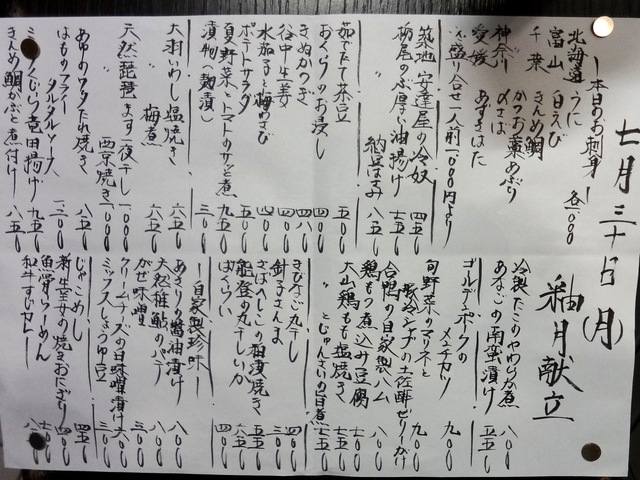 七月三十日(月)
釉月献立
ー本日のお刺身ー 各一〇〇〇
北海道 うに
富山 白えび
千葉 きんめ鯛
神奈川 かつお藁あぶり
〃 〆さば
愛媛 あずきはた
盛り合せ一人前二〇〇〇円より
築地 安達屋の冷奴 四五〇
栃尾のぶ厚い油揚げ 七五〇
〃 納豆はさみ 八五〇
茹でたて茶豆 五〇〇
おくらのお浸し 四〇〇
きぬかつぎ 四〇〇
谷中生姜 四〇〇
水茄子と梅わさび
ポテトサラダ 五〇〇
夏野菜とトマトのサッと煮 九五〇
漬物(麹漬) 三〇〇
大羽いわし 塩焼き 六五〇
〃 梅煮 六五〇
天然琵琶ます一夜干し
〃 西京焼き 一〇〇〇
あゆのワタたれ焼き 八五〇
はものフライ タルタルソース
ミンクくじら竜田揚げ 九五〇
きんめ鯛かぶと煮付け 八五〇
冷製たこのやわらか煮 八〇〇
あなごの南蛮漬け 五五〇
ゴールデンポークの メンチカツ 九〇〇
旬野菜のマリネと
土佐酢ゼリーがけ 九〇〇
合鴨の自家製ハム 八〇〇
鶏もつ煮込み豆腐 七〇〇
大山鶏もも塩焼き 七五〇
〃 とじゅんさいの旨煮
きびなご丸干し
針子さんま 四〇〇
さばへしこの粕漬焼き 五五〇
能登の丸干しいか 六五〇
ばくらい 四〇〇
ー自家製珍味ー
あさりの醤油漬け 八〇〇
天然稚鮎のパテ 八〇〇
がぜ味噌
クリームチーズの白味噌漬け 六〇〇
ミックスしょうゆ豆 三〇〇
じゃこめし 四五〇
新生姜の焼きおにぎり
魚骨らーめん
和牛すじカレー 八〇〇